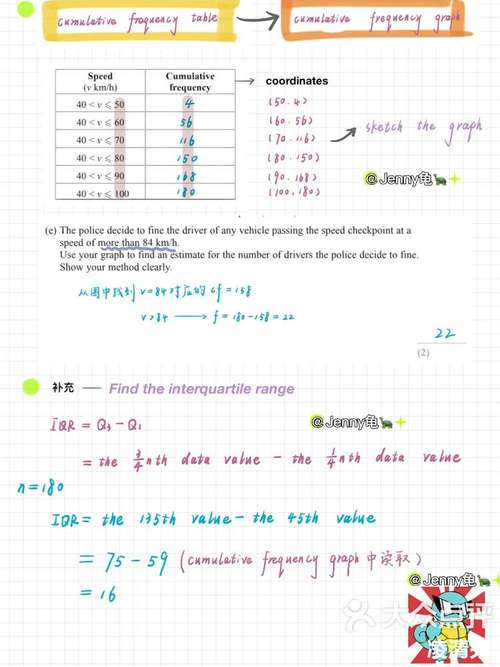 cumulative frequency table
cumulative frequency graph
Speed
(v km/h)
Cumulative
frequency
coordinates
40 < v ⩽ 50 4 (50.4)
40 < v ⩽ 60 56 (60.56)
40 < v ⩽ 70 116 (70.116)
40 < v ⩽ 80 150 (80.150)
40 < v ⩽ 90 168 (90.168)
40 < v ⩽ 100 180 (100,180)
sketch the graph
@Jenny龟
(e) The police decide to fine the driver of any vehicle passing the speed checkpoint at a
speed of more than 84 km/h.
Use your graph to find an estimate for the number of drivers the police decide to fine.
Show your method clearly.
从图中找到 v=84对应的 cf = 158
v>84 → f = 180-158 = 22
22
(2)
补充 — Find the interquartile range
IQR = Q3 - Q1
@Jenny龟
= the 3/4 nth data value - the 1/4 nth data value
n=180
IQR = the 135th value - the 45th value
= 75 - 59 (cumulative frequency graph中读取)
= 16
@Jenny龟
大众点评